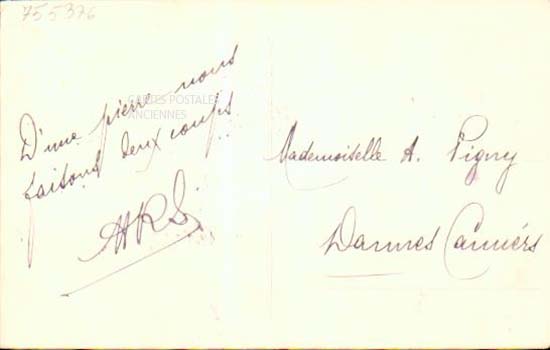 755376
D'une pierre nous
faisons deux coups
CARTES POSTALES
ANCIENNES
Mademoiselle A. Pigny
Dannes Camiers